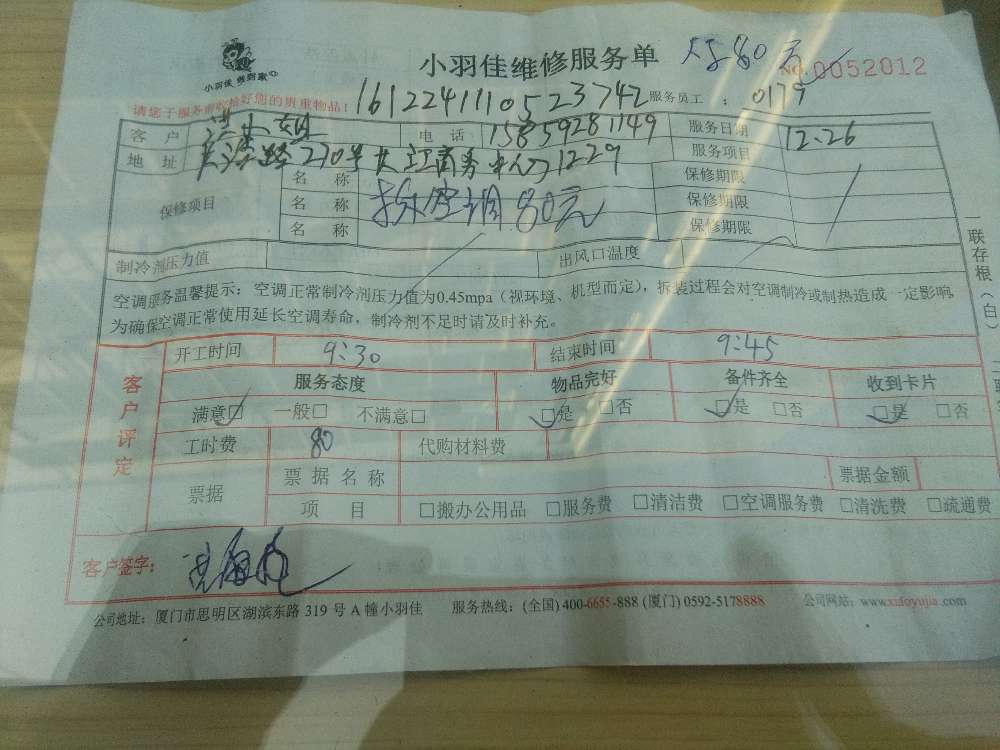 小羽佳维修服务单
80元
No.0052012
小羽佳 您到家
请您于服务前收拾好您的贵重物品!
1612241110523742 服务员工: 0179
客户 小姐 电话 15859281149 服务日期 12.26
地址 270号 江商务中心1229 服务项目
保修项目 名称 保修期限
名称 空调80元 保修期限
名称 保修期限
制冷剂压力值 出风口温度
空调服务温馨提示:空调正常制冷剂压力值为0.45mpa(视环境、机型而定),拆装过程会对空调制冷或制热造成一定影响,
为确保空调正常使用延长空调寿命,制冷剂不足时请及时补充。
一联存根(白)
客户评定
开工时间 9:30 结束时间 9:45
服务态度 物品完好 备件齐全 收到卡片
满意□ 一般□ 不满意□ □是 □否 □是 □否 □是 □否
工时费 80 代购材料费
票据 票据名称 票据金额
项目 □搬办公用品 □服务费 □清洁费 □空调服务费 □清洗费 □疏通费
客户签字:
公司地址:厦门市思明区湖滨东路 319 号 A 幢小羽佳 服务热线:(全国) 400-6655-888 (厦门) 0592-5178888 公司网站:www.xiaoyujia.com